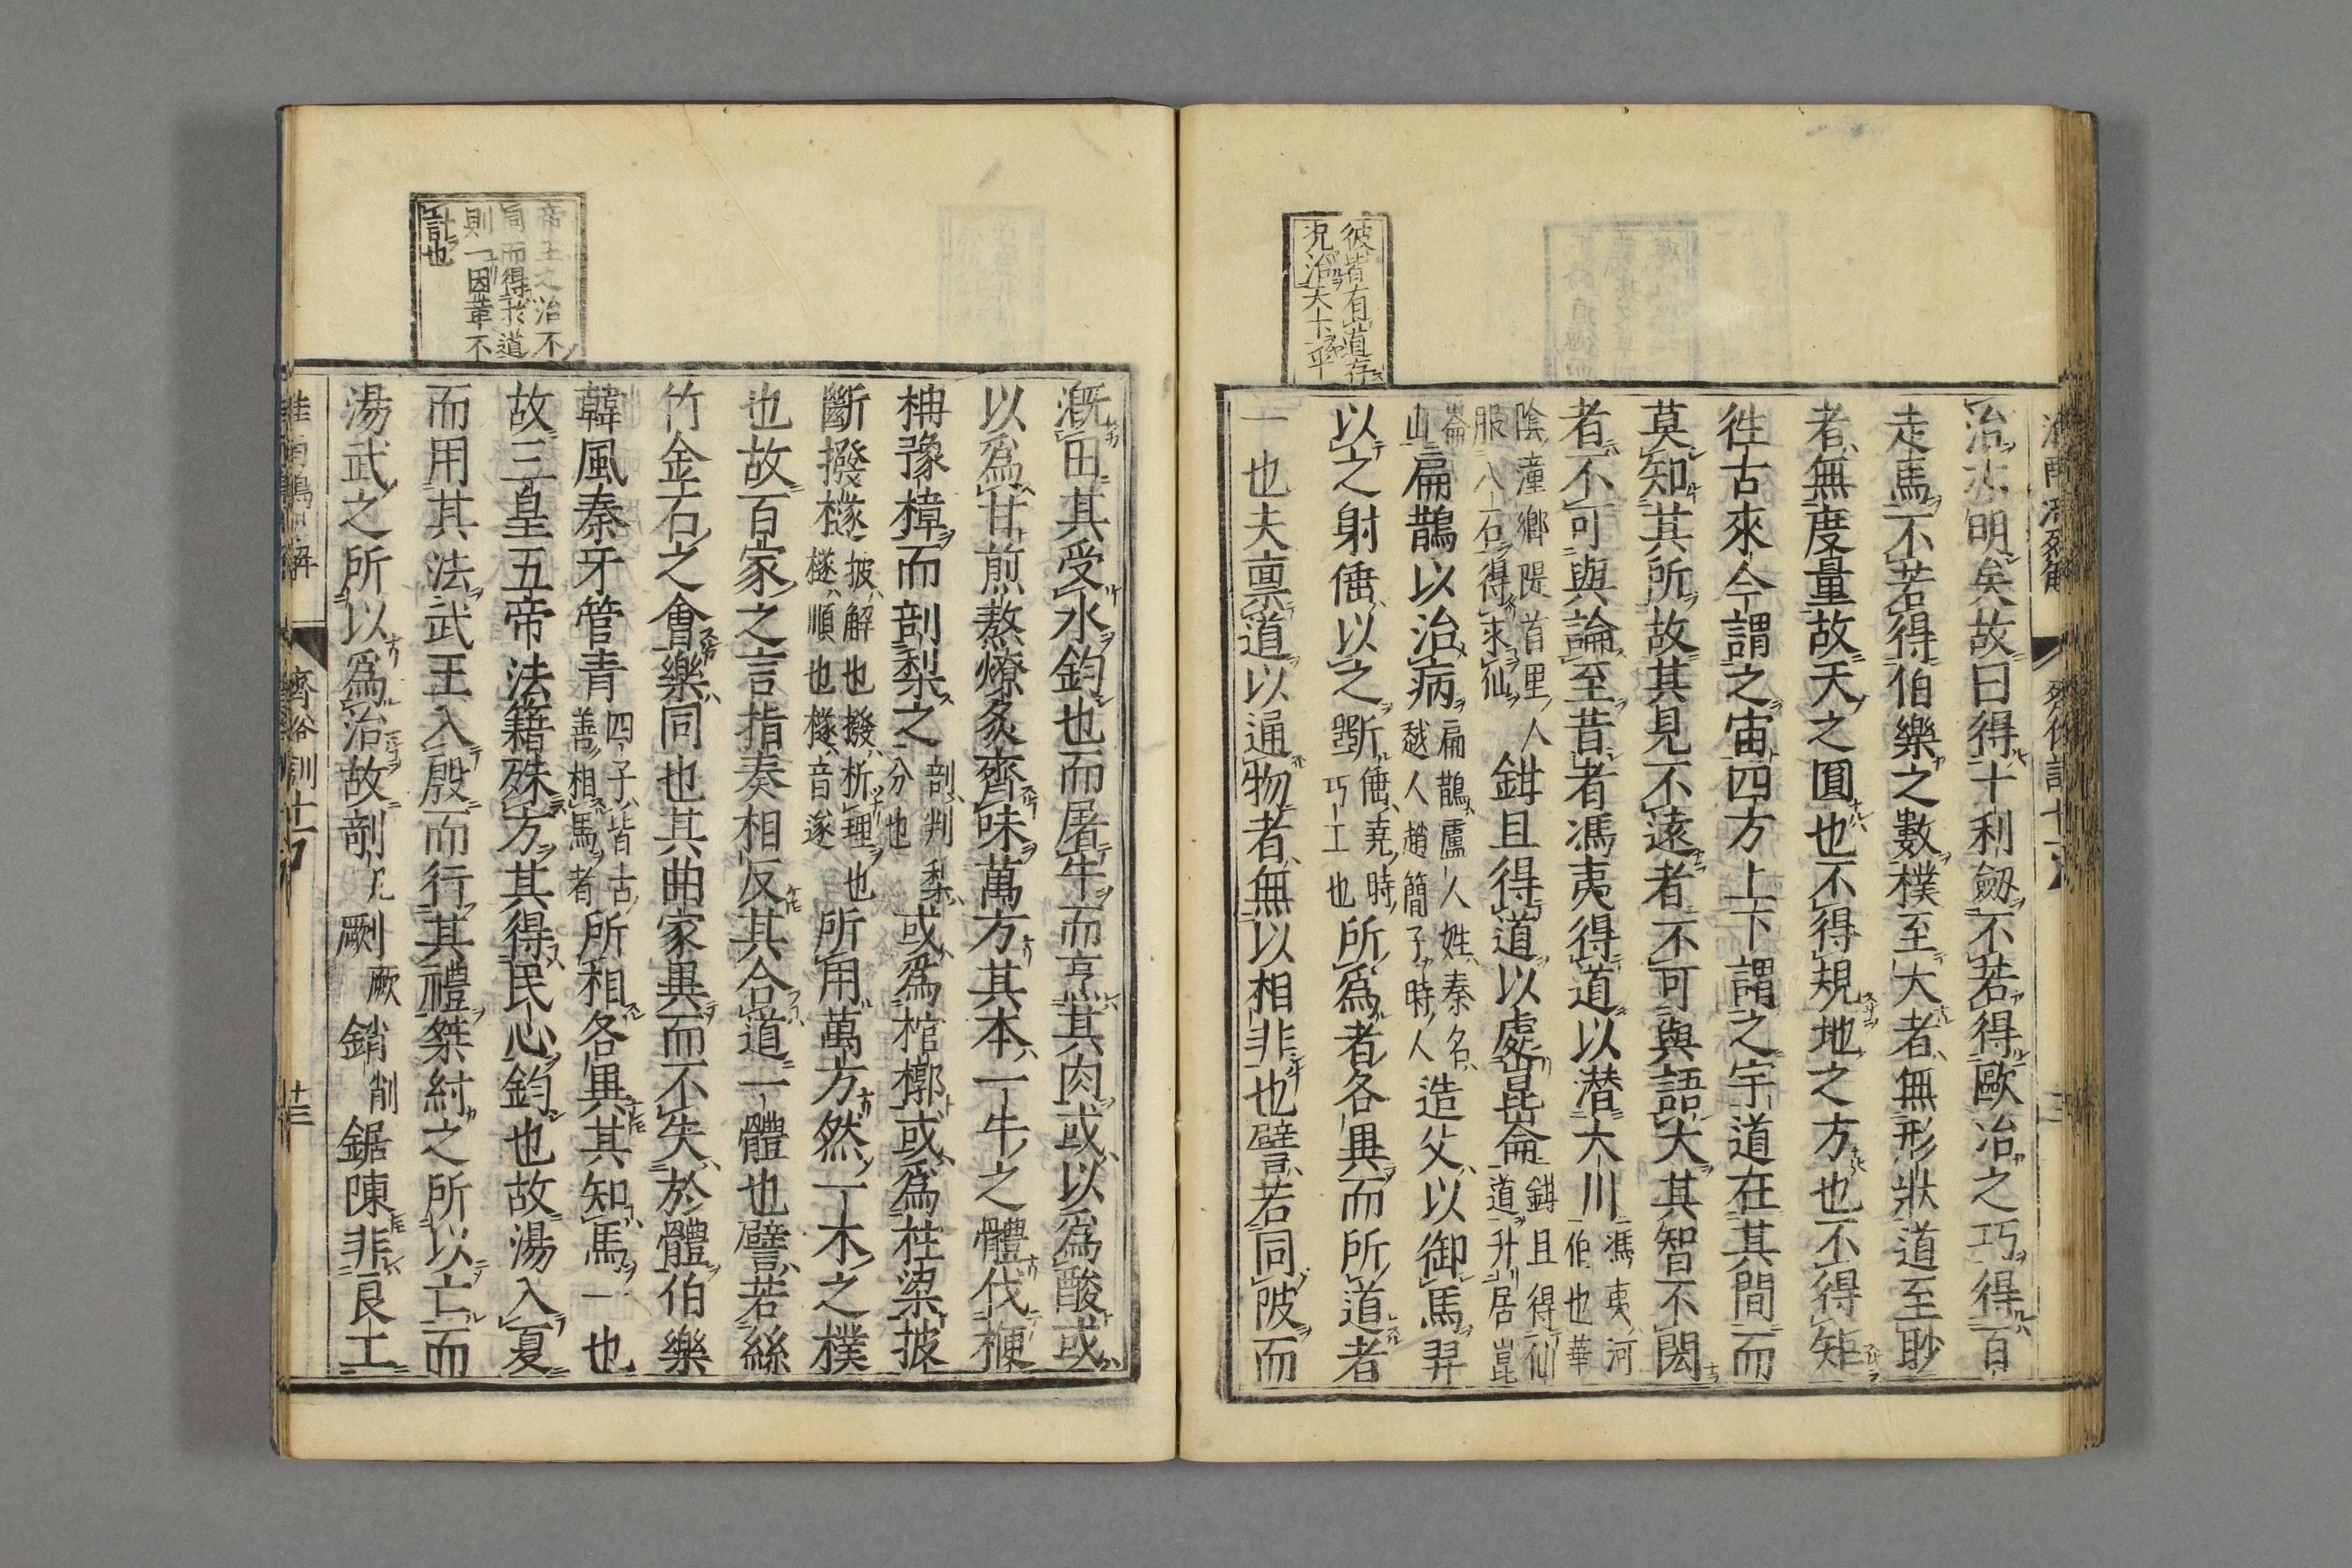 彼皆有道存
況治大卞乎
治亦明矣故曰得十利劒不若得歐冶之巧得百
走馬不若得伯樂之數樸至大者無形狀道至眇
者無度量故天之圓也不得規地之方也不得矩
徃古來今謂之宙四方上下謂之宇道在其間而
莫知其所故其見不遠者不可與語大其智不閎
者不可與論至昔者馮夷得道以潜大川馮夷河伯也華
陰潼鄉隄首里人服八石得求仙鉗且得道以處崑崙鉗且得仙道升居崑
崙山扁鵲以治病扁鵲盧人姓秦名越人趙簡子時人造父以御馬羿
以之射倕以之斲倕堯時巧工也所爲者各異而所道者
一也夫稟道以通物者無以相非也譬若同陂而
帝王之治不
同而得於道
則一因革不
計也
溉田其受水鈞也而屠牛而烹其肉或以爲酸或
以爲甘煎熬燎炙齊味萬方其本一牛之體伐楩
枏豫樟而剖梨之剖判梨分也或爲棺槨或爲柱梁披
斷撥檖披解也撥析理也檖順也檖音遂所用萬方然一木之樸
也故百家之言指奏相反其合道一體也譬若絲
竹金石之會樂同也其曲家異而不失於體伯樂
韓風秦牙管青四子皆古善相馬者所相各異其知馬一也
故三皇五帝法籍殊方其得民心鈞也故湯入夏
而用其法武王入殷而行其禮桀紂之所以亡而
湯武之所以爲治故剞几劂厥銷削鋸陳非良工
齊俗訓十一
十三